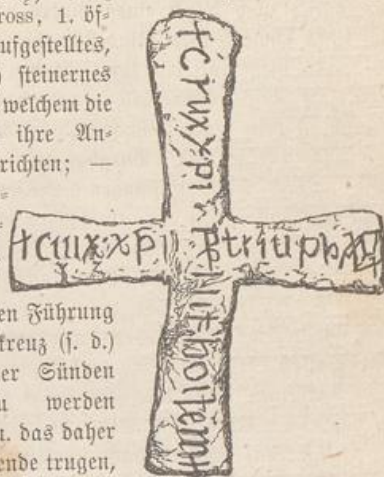 ross, 1. öf⸗
ufgestelltes,
) steinernes
welchem die
ihre An⸗
richten; —
en Führung
kreuz (s. d.)
er Sünden
u werden
u. das daher
ende trugen,
+crux xpi
+crux·xpi